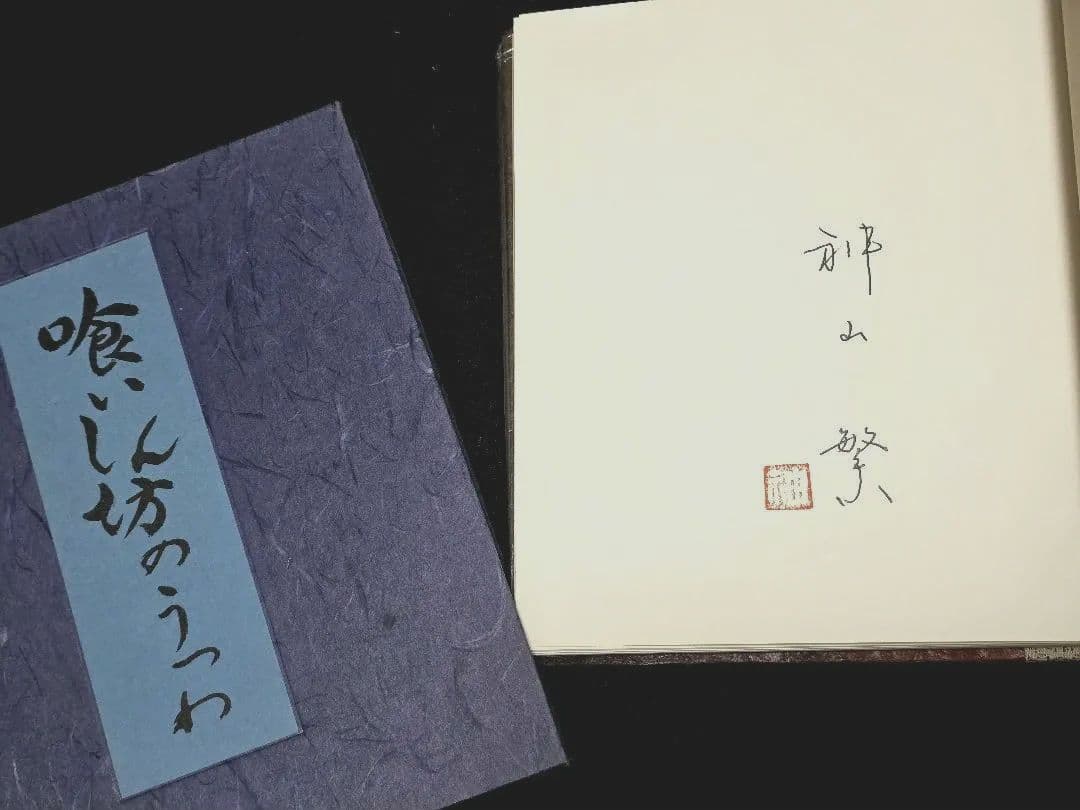 喰いしん坊のうつわ
神山繁